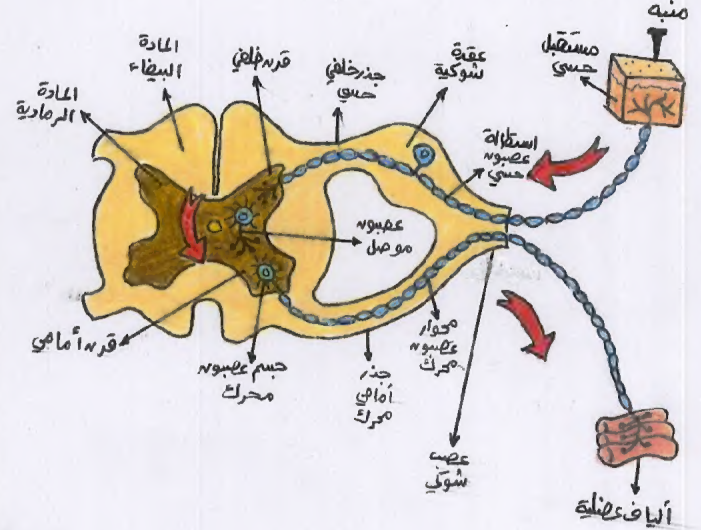 منبه
مستقبل
حسي
عقدة
شوكية
جذر خلفي
حسي
قرن خلفي
المادة
البيضاء
المادة
الرمادية
استطالة
عصبون
حسي
عصبون
موصل
قرن أمامي
جسم عصبون
محرك
جذر
أمامي
محرك
محوار
عصبون
محرك
عصب
شوكي
ألياف عضلية